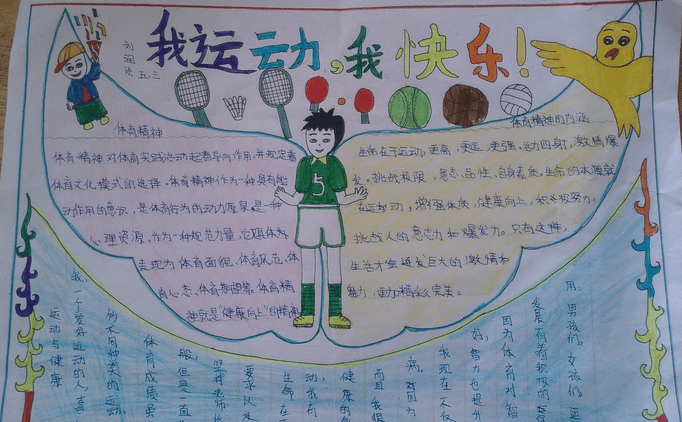 我运动,我快乐!
刘润
五.三
体育精神
体育精神对体育实践活动起着导向作用,并规定着
体育文化模式的选择。体育精神作为一种具有能
动作用的意识,是体育行为的动力源泉,是一种
心理资源,作为一种规范力量,它具体
表现为体育面貌,体育风范,体
育心态、体育期望等。体育精
神就是"健康向上"的精神
5
体育精神的内涵
生命在于运动,更高,更远,更强,活力四射,激情爆
发,挑战极限,意志品性,自身素质。生命的本源就
在运动,增强体质,健康向上,积极努力。
挑战人的意志力和爆发力。只有这种,
生活才能迸发巨大的激情和
魅力,更加精彩完美。
用,男孩们,女孩们,运
发展有着积极的
因为体育对智
好,智力也提升
我现在不仅
病,对因为
而且我很
健康的
动,我有
生命在
要求以及
坚持老师
般但是一直
体育成绩虽
的不同种类的运动
我,一个爱好运动的人,喜
运动与健康